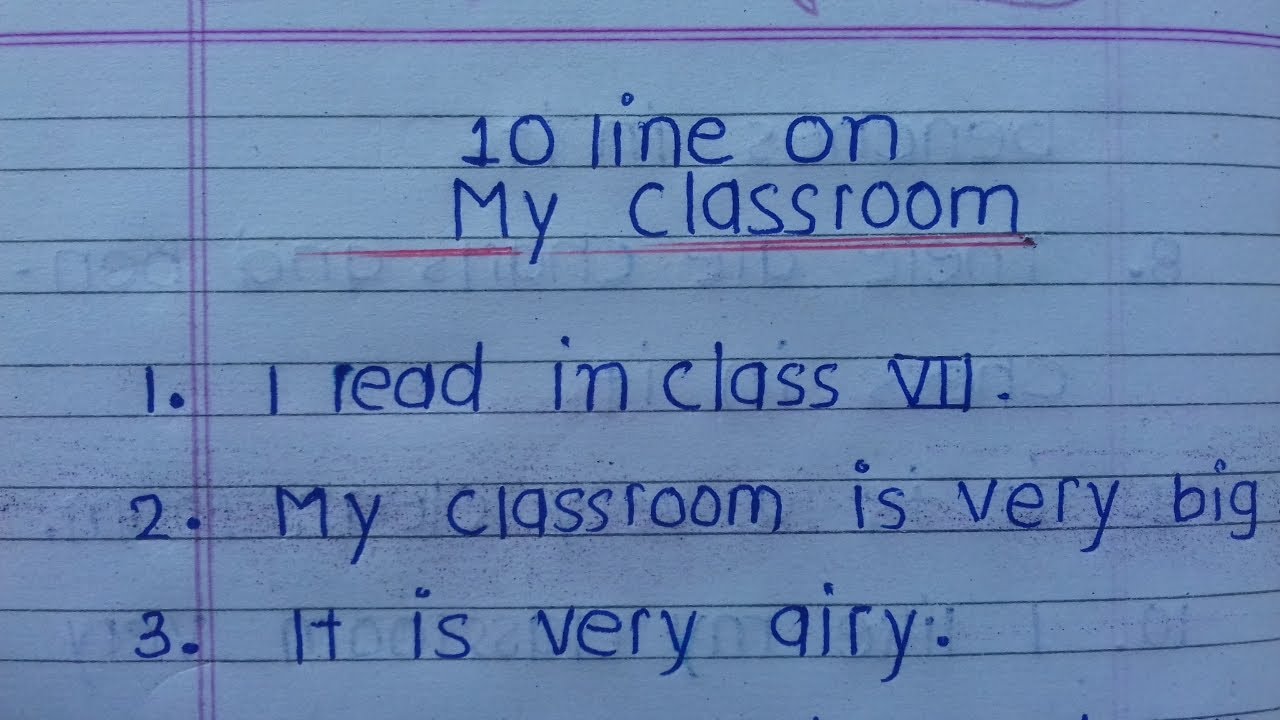 10 line on
My classroom
1. I read in class VII.
2. My classroom is very big
3. It is very airy.